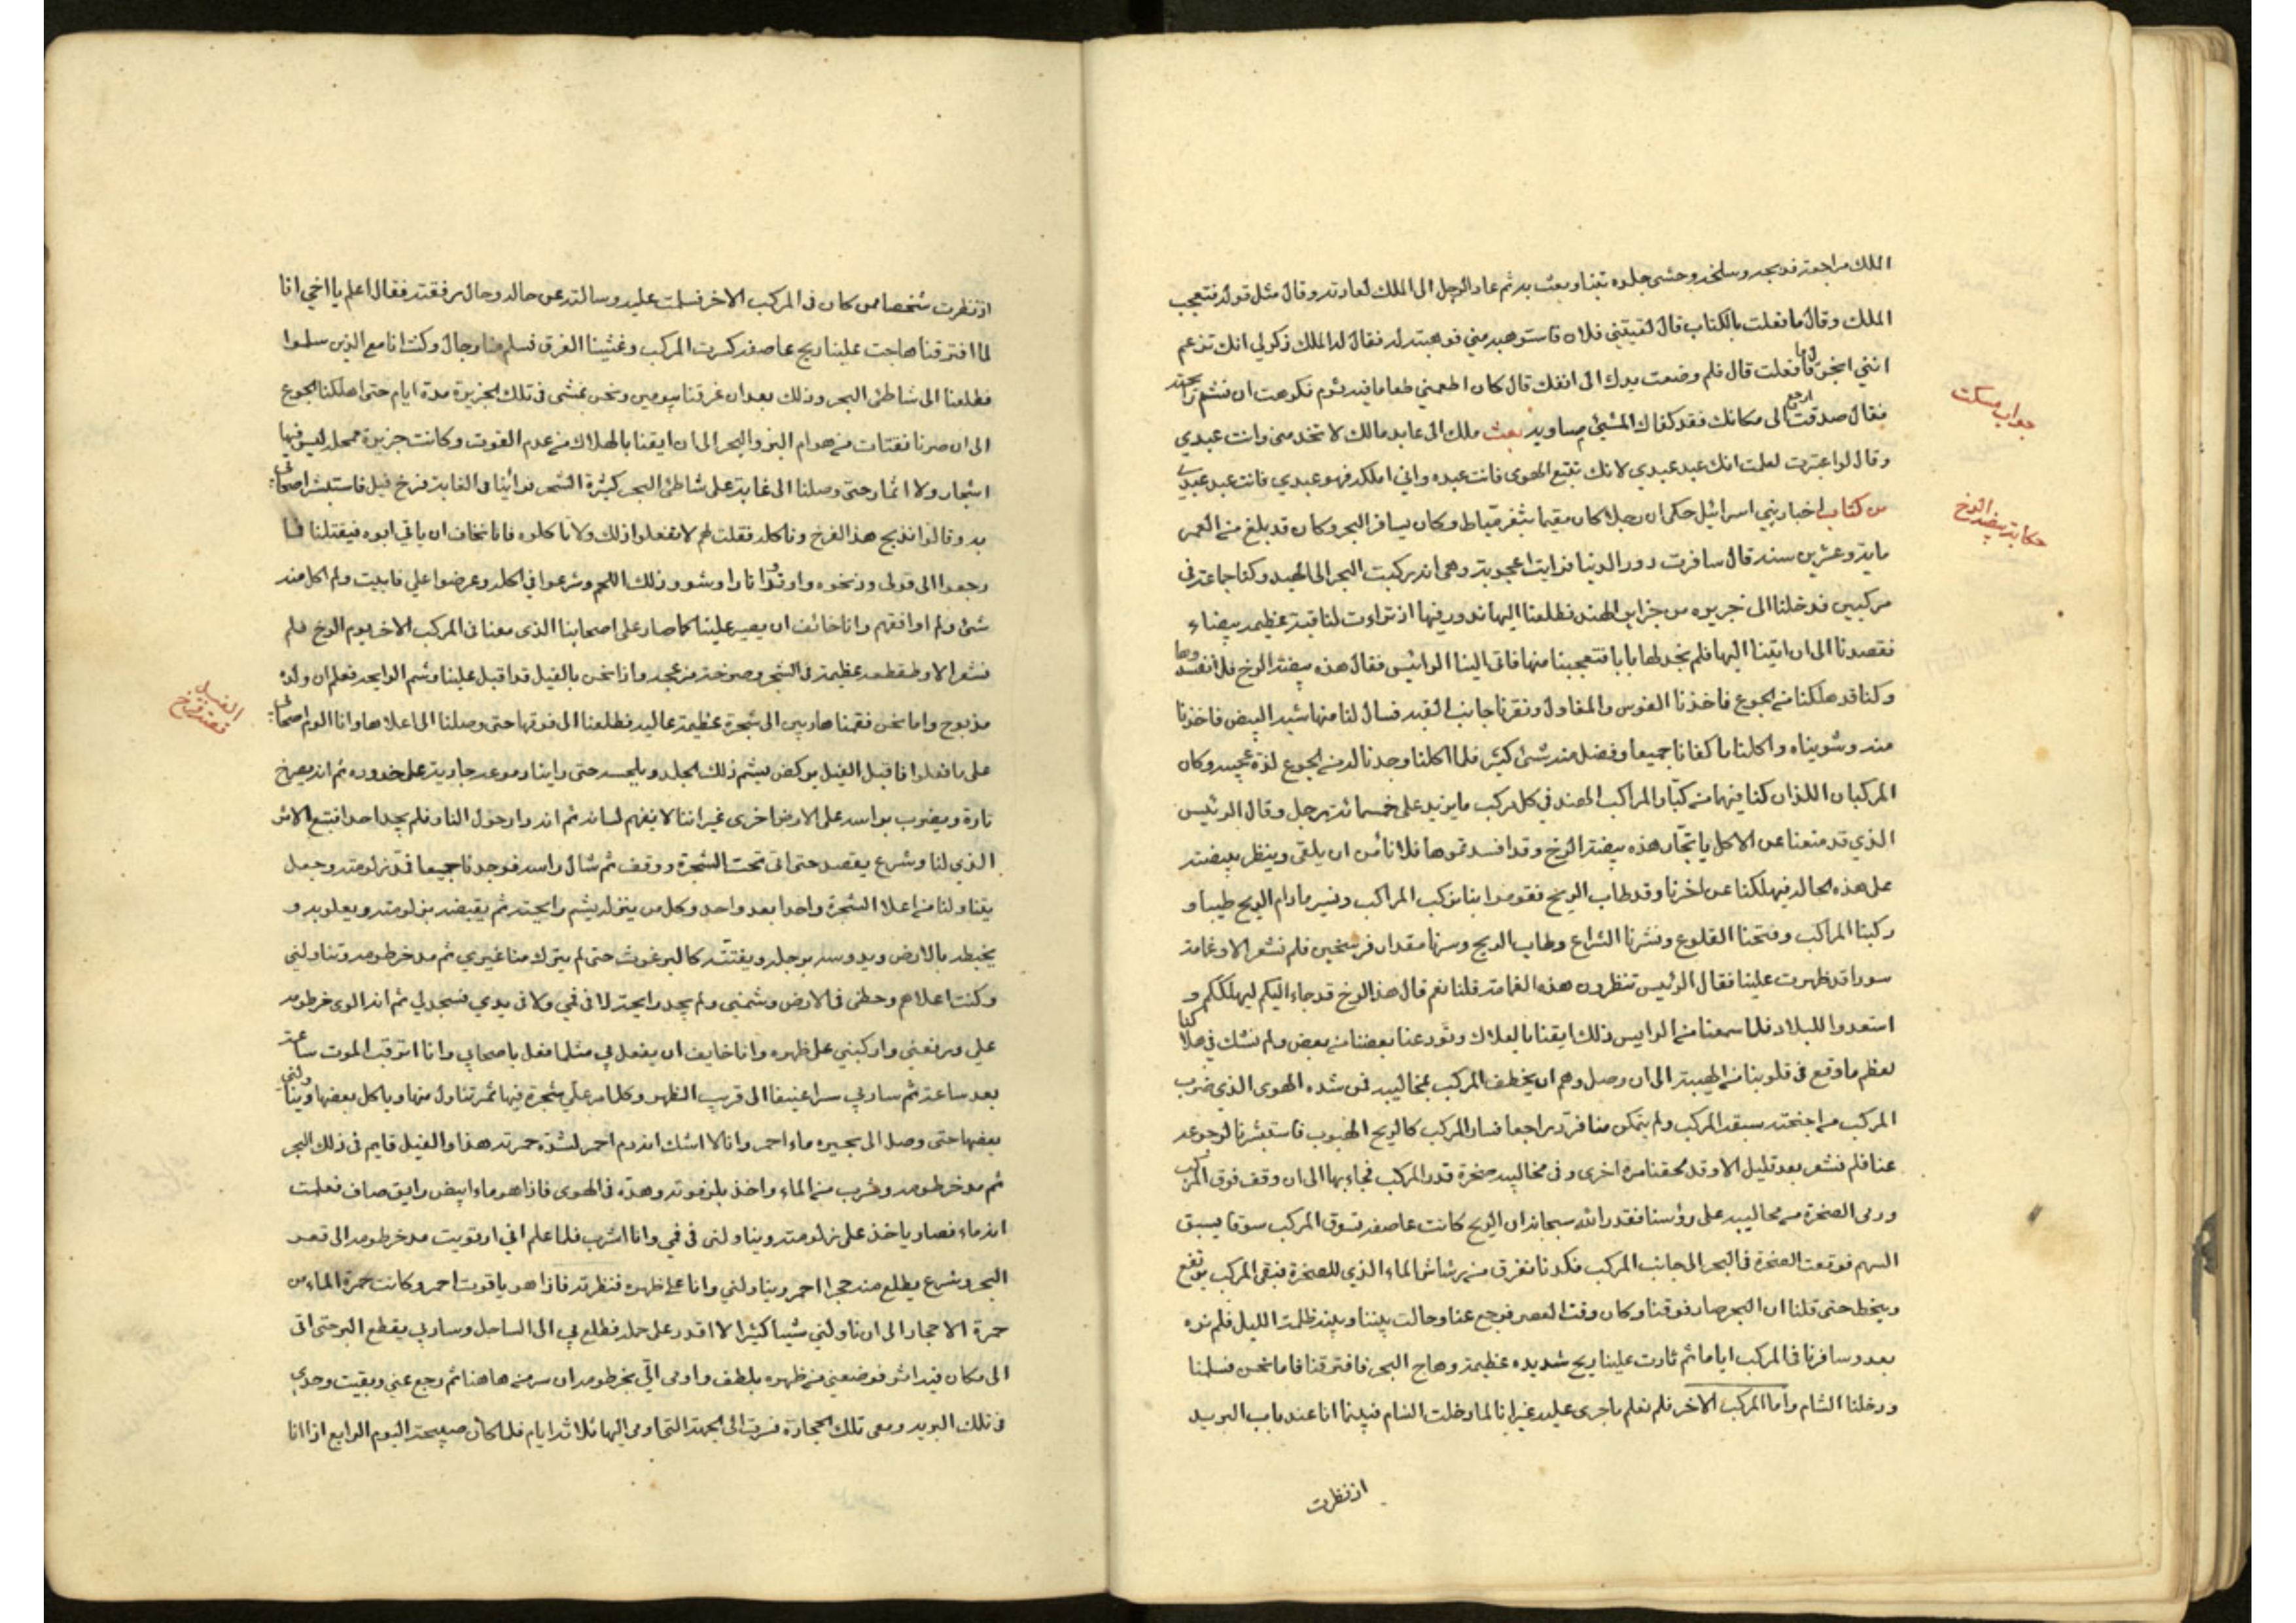 الملك مراجعته فذبحه وسلخه وحشى جلده تبنا وبعث به ثم عاد الرجل الى الملك لعادته وقال مثل قوله فتعجب
الملك وقال ما فعلت بالكتاب قال لقيتني فلان فاستوهبه مني فوهبته له فقال له الملك ذكر لي انك تزعم
انني ابخر قال ما فعلت قال فلم وضعت يدك الى انفك قال كان اطعمني طعاما فيه ثوم فكرهت ان تشم رايحته
فقال صدقت ارجع الى مكانك فقد كفاك المسئ مساويه بعث ملك الى عابد مالك لا تخدمني وانت عبدي
وقال لو اعتبرت لعلمت انك عبد عبدي لانك تتبع الهوى فانت عبده واني املكه فهو عبدي فانت عبد عبدي
من كتاب اخبار بني اسرائيل حكي ان رجلا كان مقيما بثغر دمياط وكان يسافر البحر وكان قد بلغ من العمر
ماية وعشرين سنة قال سافرت دور الدنيا فرايت اعجوبة وهي انه ركبت البحر الى الهند وكنا جماعة في
مركبين فدخلنا الى جزيره من جزاير الهند فطلعنا اليها ندور فيها اذ تراءت لنا قبة عظيمه بيضاء
فقصدنا الى ان اتينا اليها فلم نجد لها بابا فتعجبنا منها فاتى الينا الرائيس فقال هذه بيضة الرخ فلا تفسدوها
وكنا قد هلكنا من الجوع فاخذنا الفوس والمقاول ونقرنا جانب القبه فسال لنا منها شبه البيض فاخذنا
منه وشويناه واكلنا ما كفانا جميعا وفضل منه شئ كثير فلما اكلنا وجدنا له من الجوع لذة عجيبه وكان
المركبان اللذان كنا فيهما من كبار المراكب الهند في كل مركب ما يزيد على خمسمائة رجل وقال الرئيس
الذي قد منعنا عن الاكل يا تجار هذه بيضة الرخ وقد افسدتموها فلا نأمن ان يلقى وينظر بيضته
على هذه الحاله فيهلكنا عن اخرنا وقد طاب الريح فقوموا بنا نركب المراكب ونسير ما دام الريح طيبا و
ركبنا المراكب وفتحنا القلوع ونشرنا الشراع وطاب الريح وسرنا مقدار فرسخين فلم نشعر الا وغمامة
سودا قد ظهرت علينا فقال الرئيس تنظرون هذه الغمامة قلنا نعم قال هذا الرخ قد جاء اليكم ليهلككم و
استعدوا للبلاء فلما سمعنا من الرايس ذلك ايقنا بالهلاك وتودعنا بعضنا من بعض ولم نشك في هلاكنا
لعظم ما وقع في قلوبنا من الهيبة الى ان وصل وهم ان يخطف المركب بمخاليبه فمن شده الهوى الذي ضرب
المركب من اجنحته سبقه المركب ولم يتمكن منا فرد راجعا فسار المركب كالريح الهبوب فاستبشرنا لرجوعه
عنا فلم نشعر بعد قليل الا وقد لحقنا مرة اخرى وفى مخاليبه صخرة قدر المركب فجاء بها الى ان وقف فوق المركب
ورمى الصخرة من مخاليبه على رؤسنا فقدر الله سبحانه ان الريح كانت عاصفه تسوق المركب سوقا يسبق
السهم فوقعت الصخرة في البحر الى جانب المركب فكدنا نغرق من رشاش الماء الذي للصخرة فبقى المركب يرتفع
وينحط حتى قلنا ان البحر صار فوقنا وكان وقت العصر فرجع عنا وحالت بيننا وبينه ظلمة الليل فلم نره
بعد وسافرنا في المركب اياما ثم ثارت علينا ريح شديده عظيمة وهاج البحر فافترقنا فاما نحن فسلمنا
ودخلنا الشام واما المركب الاخر فلم نعلم ما جرى عليه غير انا لما دخلت الشام فبينما انا عند باب البريد
اذ نظرت
جواب مسكت
حكاية بيضة الرخ
اذ نظرت شخصا ممن كان في المركب الاخر فسلمت عليه وسالته عن حاله وحال رفقته فقال اعلم يا اخي انا
لما افترقنا هاجت علينا ريح عاصفه كسرت المركب وغشينا الغرق فسلم منا رجال وكنت انا مع الذين سلموا
فطلعنا الى شاطئ البحر وذلك بعد ان غرقنا بيومين ونحن نمشى في تلك الجزيرة مدة ايام حتى اهلكنا الجوع
الى ان صرنا نقتات من هوام البر والبحر الى ان ايقنا بالهلاك من عدم القوت وكانت جزيرة ممحله ليس فيها
اشجار ولا اثمار حتى وصلنا الى غابة على شاطئ البحر كثيرة الشجر فراينا في الغابة فرخ فيل فاستبشر اصحابي
به وقالوا نذبح هذا الفرخ وناكله فقلت لهم لا تفعلوا ذلك ولا تاكلوه فانا نخاف ان ياتي ابوه فيقتلنا فما
رجعوا الى قولي وذبحوه واوقدوا نارا وشوو ذلك اللحم وشرعوا في اكله وعرضوا علي فابيت ولم اكل منه
شئ ولم اوافقهم وانا خائف ان يصير علينا كما صار على اصحابنا الذي معنا في المركب الاخر يوم الرخ فلم
نشعر الا وطقطقه عظيمة في الشجر وصرخة مزعجه واذا نحن بالفيل قد اقبل علينا وشم الرايحه فعلم ان ولده
مذبوح واما نحن فقمنا هاربين الى شجرة عظيمة عاليه فطلعنا الى فوقها حتى وصلنا الى اعلاها وانا الوم اصحابي
على ما فعلوا فاقبل الفيل يركض يشم ذلك الجلد ويلحسه حتى راينا دموعه جارية على خدوده ثم انه يصرخ
تارة ويضرب براسه على الارض اخرى غير اننا لا نفهم لسانه ثم انه دار حول النار فلم يجد احدا فتتبع الاثر
الذي لنا وشرع يقصه حتى اتى تحت الشجرة ووقف ثم شال راسه فوجدنا جميعا فمد زلومته وجعل
يتناولنا من اعلا الشجرة واحدا بعد واحد وكل من ينزله يشم رايحته ثم يقبضه بزلومته ويعلو به و
يخبطه بالارض ويدوسه برجله ويفتته كالبرغوث حتى لم يترك منا غيري ثم مد خرطومه وتناولني
وكنت اعلاهم وحطني في الارض وشمني ولم يجد رايحته لا في فمي ولا في يدي فسجد لي ثم انه الوى خرطومه
علي ورفعني واركبني على ظهره وانا خايف ان يفعل بي مثلما فعل باصحابي وانا اترقب الموت ساعة
بعد ساعة ثم سار بي سيرا عنيفا الى قريب الظهر وكلما مر على شجرة فيها ثمر تناول منها وياكل بعضها ويناولني
بعضها حتى وصل الى بحيره ماء احمر وانا لا اشك انه دم احمر لشدة حمرته هذا والفيل قايم في ذلك البحر
ثم مد خرطومه وشرب من الماء واخذ بلزومته وهذه في الهوى فاذا هو ماء ابيض رايق صاف فعلمت
انه ماء فصار ياخذ على زلومته ويناولنى في فمي وانا اشرب فلما علم اني ارتويت مد خرطومه الى قعر
البحر وشرع يطلع منه حجرا احمر ويناولني وانا على ظهره فنظرته فاذا هو ياقوت احمر وكانت حمرة الماء من
حمرة الاحجار الى ان ناولني شيئا كثيرا لا اقدر على حمله فطلع بي الى الساحل وسار بي يقطع البر حتى اتى
الى مكان فيه اثر فوضعني من ظهره بلطف واومى الي بخرطومه ان سر من هاهنا ثم رجع عني وبقيت وحدي
في تلك البريه ومعي تلك الحجارة فسرت الى الجهة التي اومى اليها ثلاثة ايام فلما كان صبيحة اليوم الرابع اذا انا
قصة فرخ الفيل